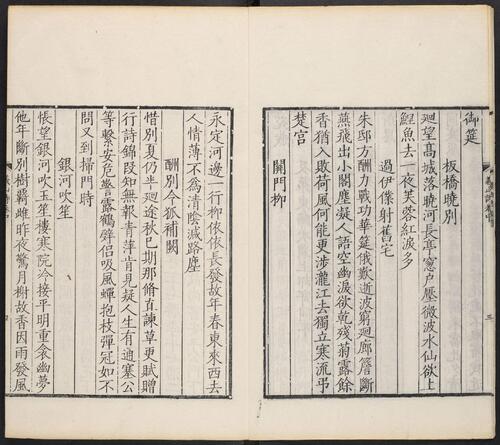 御筵
板橋曉別
廻望髙城落曉河長亭窓户壓微波水仙欲上
鯉魚去一夜芙蓉紅淚多
過伊僕射舊宅
朱邸方酬力戰功華筵俄歎逝波窮廻廊簷斷
燕飛出小閣塵凝人語空幽淚欲乾殘菊露餘
香猶入敗荷風何能更涉瀧江去獨立寒流弔
楚宮
關門柳
永定河邊一行柳依依長發故年春東來西去
人情薄不為清陰減路塵
酬別令狐補闕
惜別夏仍半廻途秋已期那脩直諫草更賦贈
行詩錦段知無報青萍肯見疑人生有通塞公
等繫安危警露鶴辭侶吸風蟬抱枝彈冠如不
問又到掃門時
銀河吹笙
悵望銀河吹玉笙樓寒院冷接平明重衾幽夢
他年斷別樹羇雌昨夜驚月榭故香因雨發風